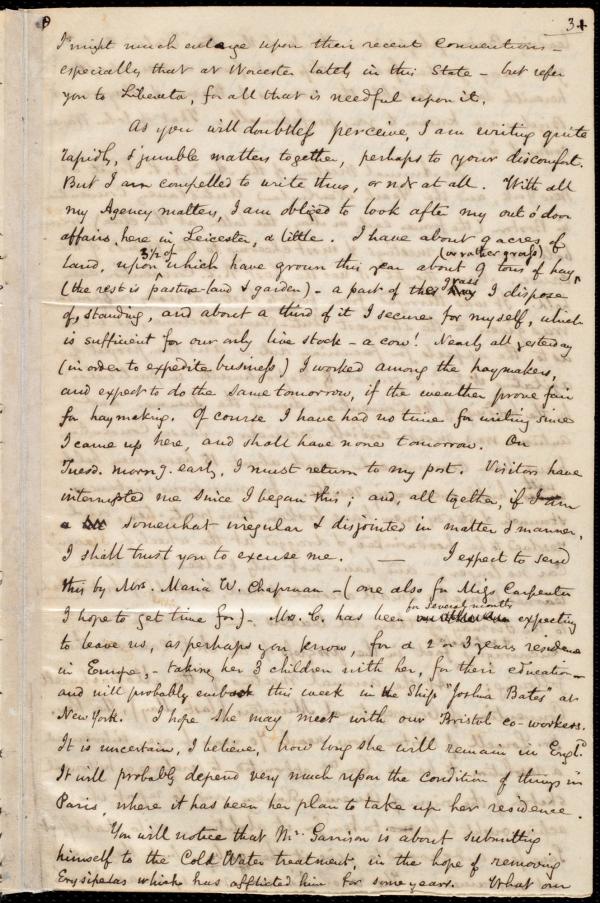 3.
I might much enlarge upon their recent Conventions –
especially that at Worcester lately in this State – but refer
you to Liberator, for all that is needful upon it.
As you will doubtless perceive, I am writing quite
rapidly, & jumble matters together, perhaps to your discomfort.
But I am compelled to write thus, or not at all. With all
my Agency matters, I am obliged to look after my out o' door
affairs, here in Leicester, a little. I have about 9 acres of
land, upon 3½ of which have grown this year about 9 tons of hay, (or rather grass)
(the rest is pasture-land & garden) – a part of the grass I dispose
of, standing, and about a third of it I secure for myself, which
is sufficient for our only live stock – a cow! Nearly all yesterday
(in order to expedite business) I worked among the haymakers,
and expect to do the same tomorrow, if the weather prove fair
for haymaking. Of course I have had no time for writing since
I came up here, and shall have none tomorrow. On
Tuesd. morng. early, I must return to my post. Visitors have
interrupted me since I began this; and, all together, if I am
a somewhat irregular & disjointed in matter & manner,
I shall trust you to excuse me. — I expect to send
this by Mrs. Maria W. Chapman – (one also for Miss Carpenter
I hope to get time for) – Mrs. C. has been for several months expecting
to leave us, as perhaps you know, for a 2 or 3 years residence
in Europe, – taking her 3 children with her, for their education –
and will probably embark this week in the Ship "Joshua Bates" at
New York. I hope she may meet with our Bristol co-workers.
It is uncertain, I believe, how long she will remain in Engld.
It will probably depend very much upon the condition of things in
Paris, where it has been her plan to take up her residence.
You will notice that Mr. Garrison is about submitting
himself to the Cold Water treatment, in the hope of removing
Erysipelas which has afflicted him for some years. What our